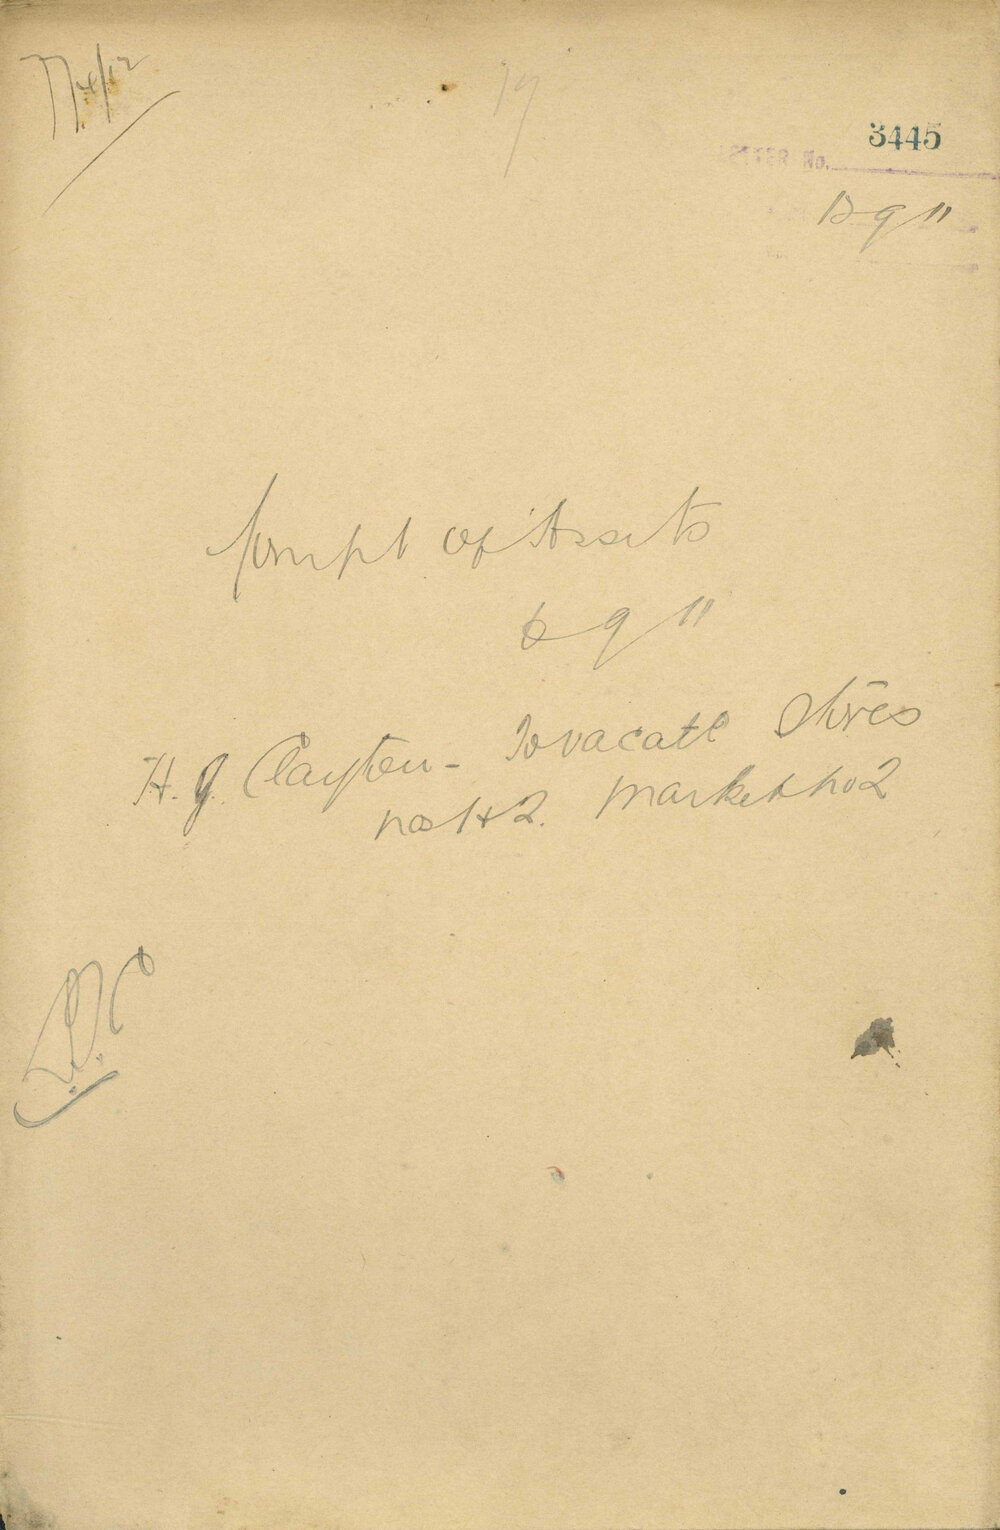 77.4/12
19
3445
LETTER No.
13 9 11
Compt of Assets
6 9 11
H. J. Clayton - To vacate Stores
nos 1 & 2. Market no 2